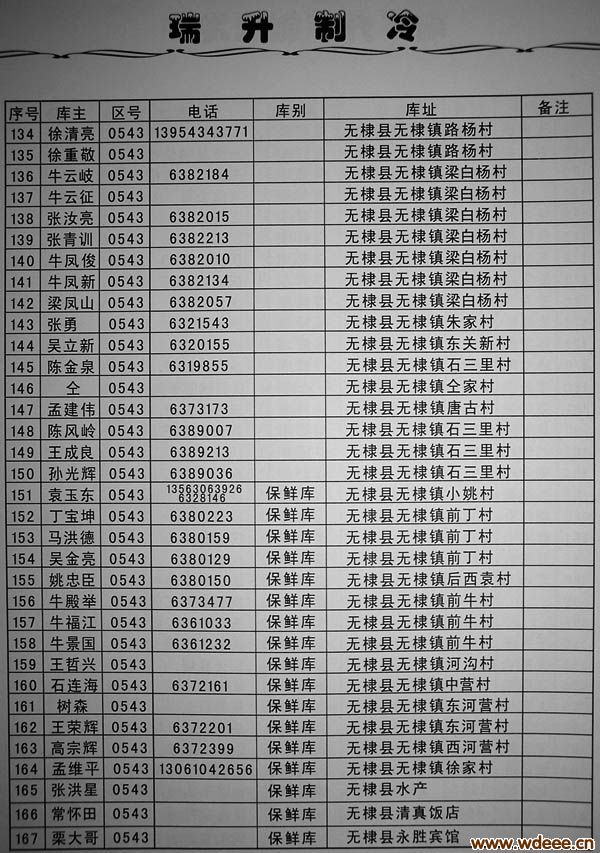 瑞升制冷
序号 库主 区号 电话 库别 库址 备注
134 徐清亮 0543 13954343771 无棣县无棣镇路杨村
135 徐重敬 0543 无棣县无棣镇路杨村
136 牛云岐 0543 6382184 无棣县无棣镇梁白杨村
137 牛云征 0543 无棣县无棣镇梁白杨村
138 张汝亮 0543 6382015 无棣县无棣镇梁白杨村
139 张青训 0543 6382213 无棣县无棣镇梁白杨村
140 牛凤俊 0543 6382010 无棣县无棣镇梁白杨村
141 牛凤新 0543 6382134 无棣县无棣镇梁白杨村
142 梁凤山 0543 6382057 无棣县无棣镇梁白杨村
143 张勇 0543 6321543 无棣县无棣镇朱家村
144 吴立新 0543 6320155 无棣县无棣镇东关新村
145 陈金泉 0543 6319855 无棣县无棣镇石三里村
146 仝 0543 无棣县无棣镇仝家村
147 孟建伟 0543 6373173 无棣县无棣镇唐古村
148 陈风岭 0543 6389007 无棣县无棣镇石三里村
149 王成良 0543 6389213 无棣县无棣镇石三里村
150 孙光辉 0543 6389036 无棣县无棣镇石三里村
151 袁玉东 0543 13563063926 6328146 保鲜库 无棣县无棣镇小姚村
152 丁宝坤 0543 6380223 保鲜库 无棣县无棣镇前丁村
153 马洪德 0543 6380159 保鲜库 无棣县无棣镇前丁村
154 吴金亮 0543 6380129 保鲜库 无棣县无棣镇前丁村
155 姚忠臣 0543 6380150 保鲜库 无棣县无棣镇后西袁村
156 牛殿举 0543 6373477 保鲜库 无棣县无棣镇前牛村
157 牛福江 0543 6361033 保鲜库 无棣县无棣镇前牛村
158 牛景国 0543 6361232 保鲜库 无棣县无棣镇前牛村
159 王哲兴 0543 保鲜库 无棣县无棣镇河沟村
160 石连海 0543 6372161 保鲜库 无棣县无棣镇中营村
161 树森 0543 保鲜库 无棣县无棣镇东河营村
162 王荣辉 0543 6372201 保鲜库 无棣县无棣镇东河营村
163 高宗辉 0543 6372399 保鲜库 无棣县无棣镇西河营村
164 孟维平 0543 13061042656 保鲜库 无棣县无棣镇徐家村
165 张洪星 0543 保鲜库 无棣县水产
166 常怀田 0543 保鲜库 无棣县清真饭店
167 栗大哥 0543 保鲜库 无棣县永胜宾馆
www.wdeee.cn